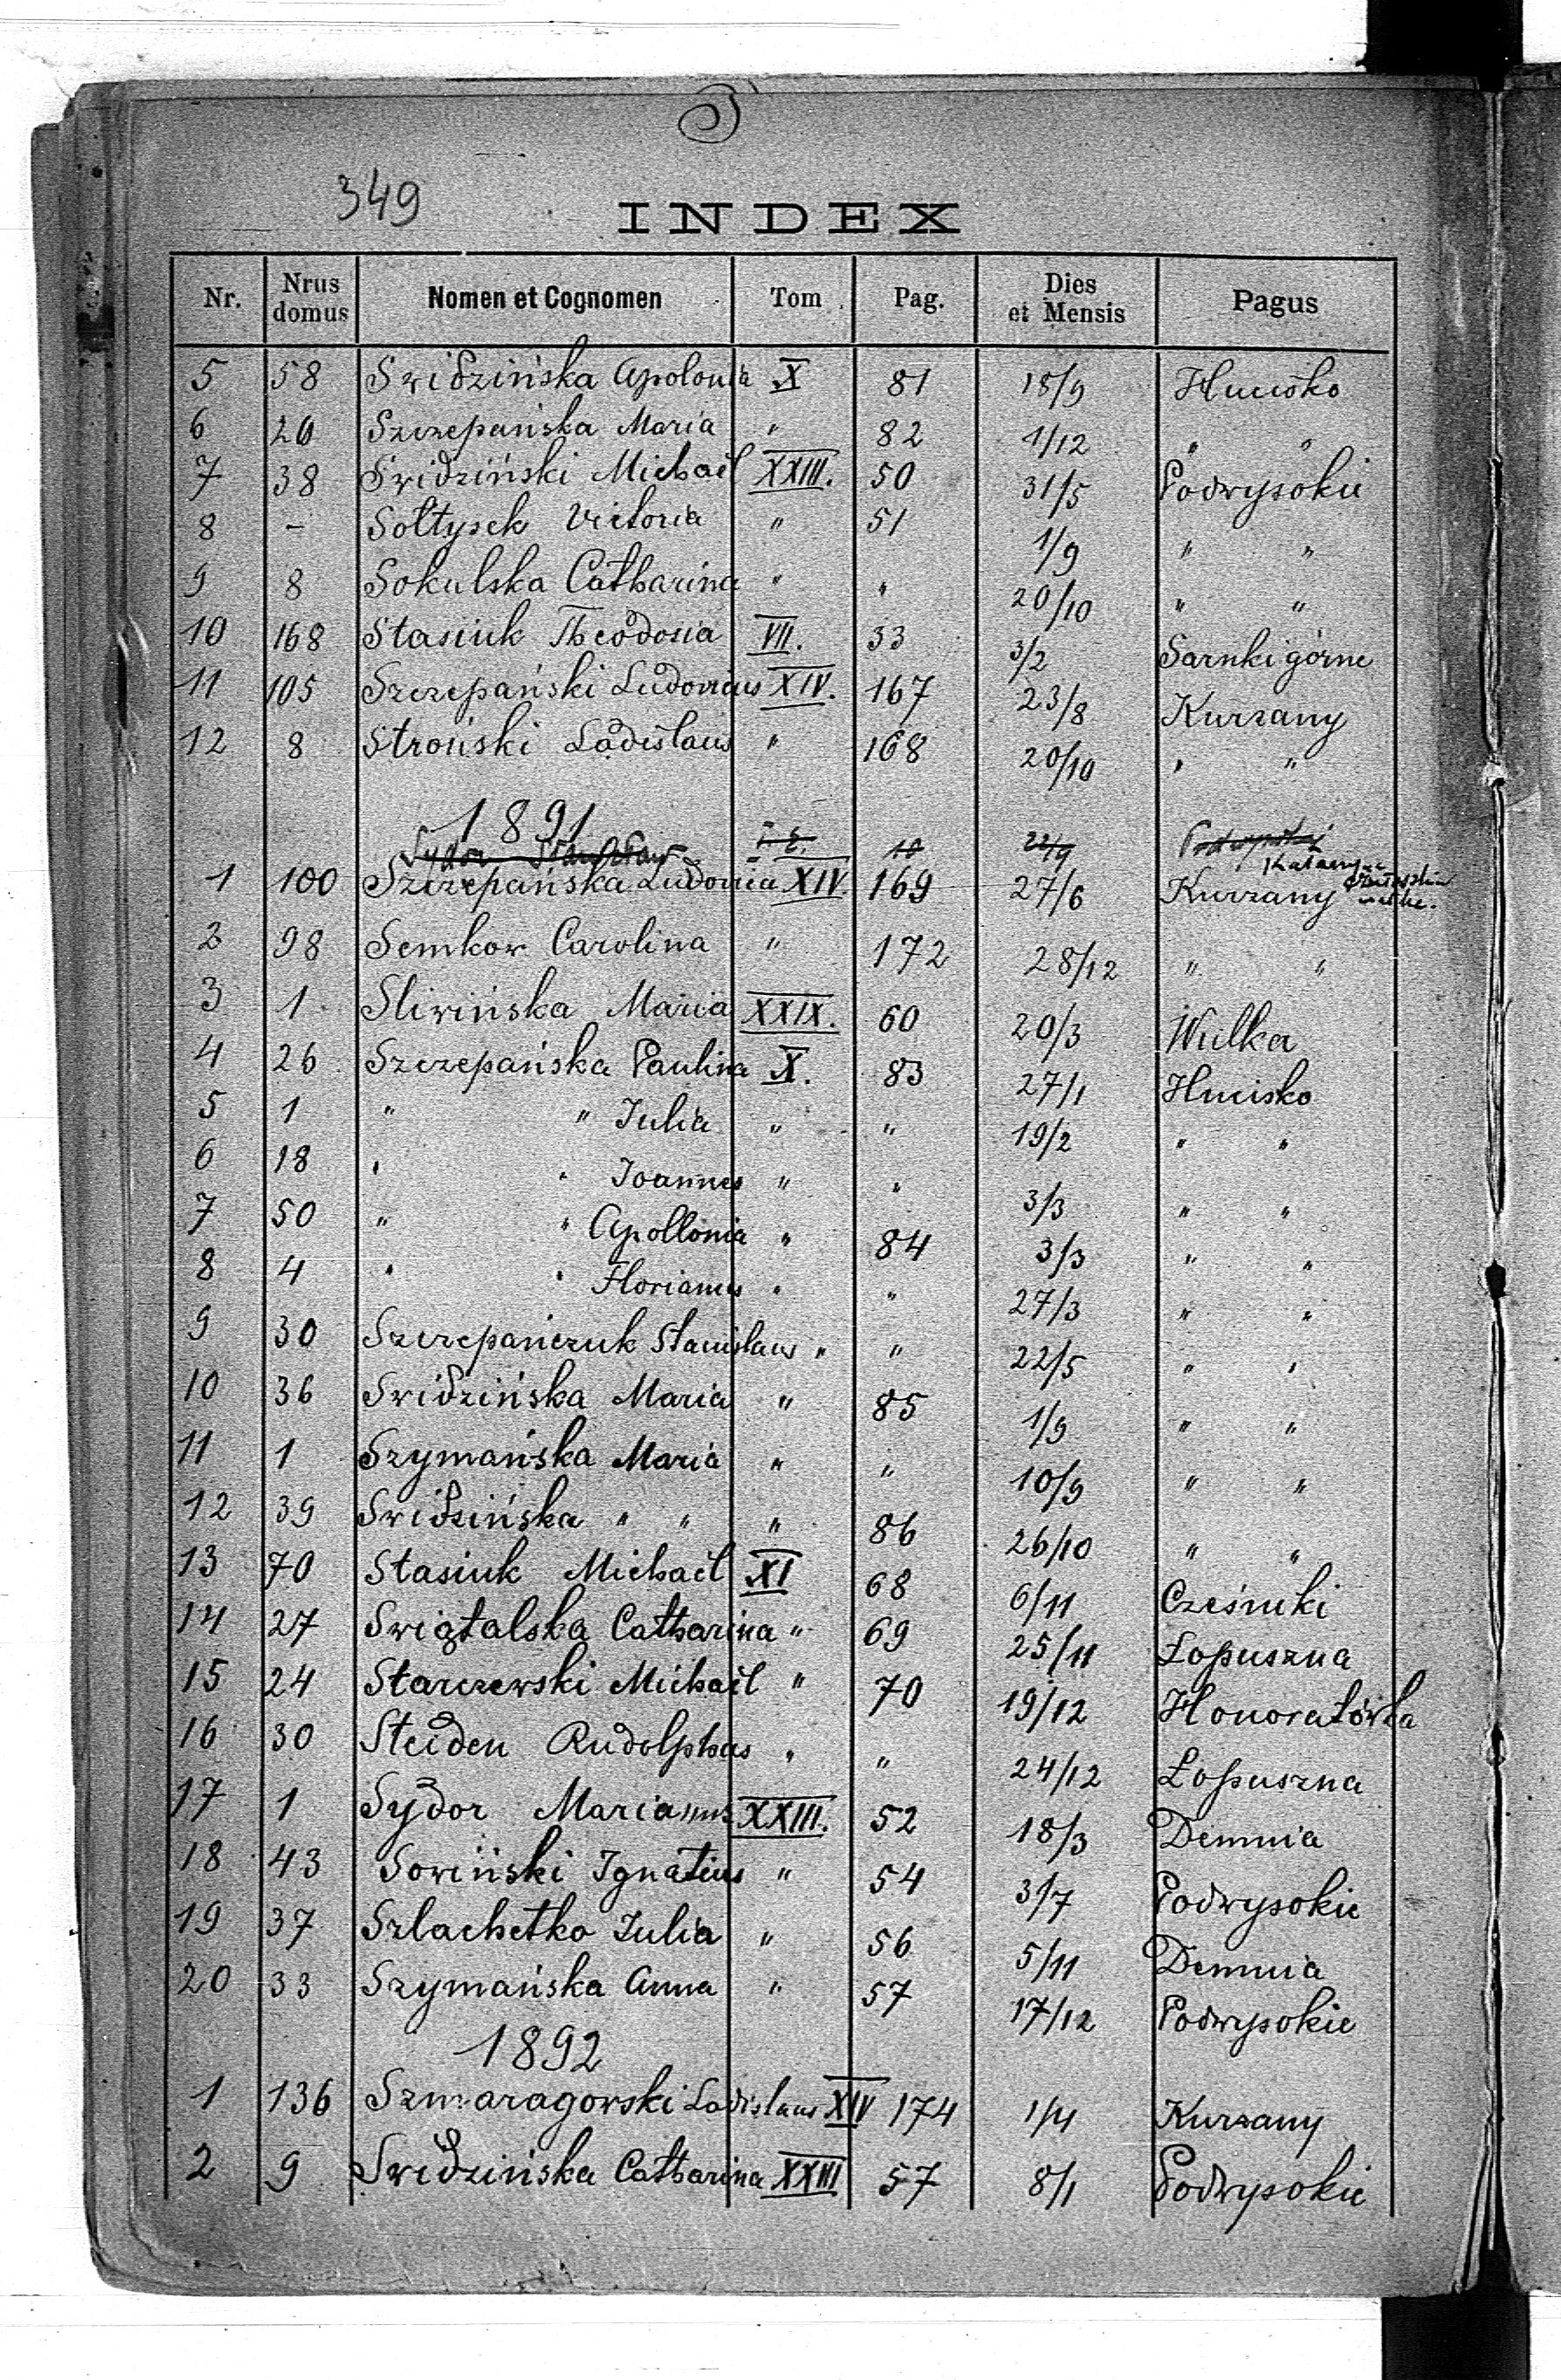 S
349
INDEX
Nr. Nrus domus Nomen et Cognomen Tom Pag. Dies et Mensis Pagus
5 58 Swidzińska Apolonia X 81 18/9 Hucisko
6 26 Szczepańska Maria " 82 1/12 " "
7 38 Swidziński Michael XXIII. 50 31/5 Podwysokie
8 - Sołtysek Victoria " 51 1/9 " "
9 8 Sokulska Catharina " " 20/10 " "
10 168 Stasiuk Theodosia VII. 33 3/2 Sarnki górne
11 105 Szczepański Ludovicus XIV. 167 23/8 Kurzany
12 8 Stroński Ladislaus " 168 20/10 " "
1891
Sydor 22/9
1 100 Szczepańska Ludovica XIV. 169 27/6 Kurzany
2 98 Semkow Carolina " 172 28/12 " "
3 1 Sliwińska Maria XXIX. 60 20/3 Wulka
4 26 Szczepańska Paulina X. 83 27/1 Hucisko
5 1 " " Julia " " 19/2 " "
6 18 " " Joannes " " 3/3 " "
7 50 " " Apollonia " 84 3/3 " "
8 4 " " Florianus " " 27/3 " "
9 30 Szczepańczuk Stanislaus " " 22/5 " "
10 36 Swidzińska Maria " 85 1/9 " "
11 1 Szymańska Maria " " 10/9 " "
12 39 Swidzińska " " " 86 26/10 " "
13 70 Stasiuk Michael XI 68 6/11 Cześniki
14 27 Swiątalska Catharina " 69 25/11 Łopuszna
15 24 Starczewski Michael " 70 19/12 Honoratówka
16 30 Steiden Rudolphus " " 24/12 Łopuszna
17 1 Sydor Marianus XXIII. 52 18/3 Demnia
18 43 Sowiński Ignatius " 54 31/7 Podwysokie
19 37 Szlachetko Julia " 56 5/11 Demnia
20 33 Szymańska Anna " 57 17/12 Podwysokie
1892
1 136 Szmaragowski Ladislaus XIV 174 1/4 Kurzany
2 9 Swidzińska Catharina XXIII 57 8/1 Podwysokie